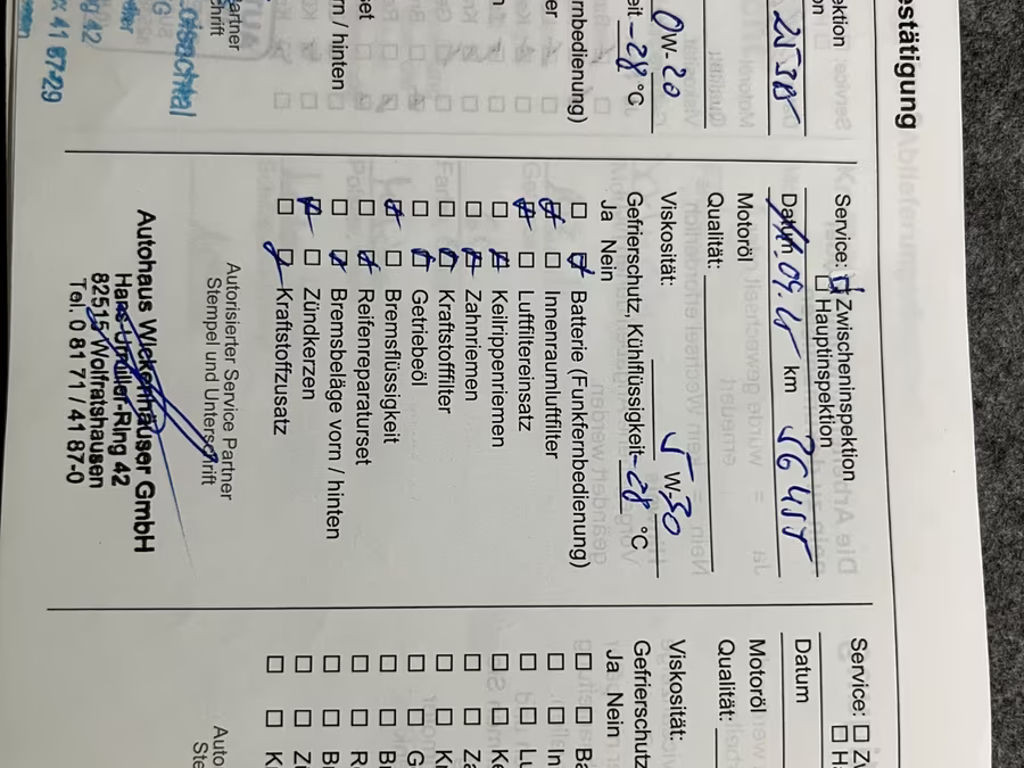 estätigung
ektion
on
25385
0w-20
eit -28 °C
rnbedienung)
ter
set
rn / hinten
artner
hrift
Loisachtal
g 42
x 41 87-29
Service: Zwischeninspektion
Hauptinspektion
Datum 09. km
Motoröl
Qualität:
Viskosität: 5 W-30
Gefrierschutz, Kühlflüssigkeit -28 °C
Ja Nein
Batterie (Funkfernbedienung)
Innenraumluftfilter
Luftfiltereinsatz
Keilrippenriemen
Zahnriemen
Kraftstofffilter
Getriebeöl
Bremsflüssigkeit
Reifenreparaturset
Bremsbeläge vorn / hinten
Zündkerzen
Kraftstoffzusatz
Autorisierter Service Partner
Stempel und Unterschrift
Autohaus Wickenhäuser GmbH
Hans-Urmiller-Ring 42
82515 Wolfratshausen
Tel. 0 81 71 / 41 87-0
Service: Zw
Ha
Datum
Motoröl
Qualität:
Viskosität:
Gefrierschutz
Ja Nein
Ba
In
Lu
Ke
Za
Kr
G
Br
R
Br
Zi
K
Auto
Ste